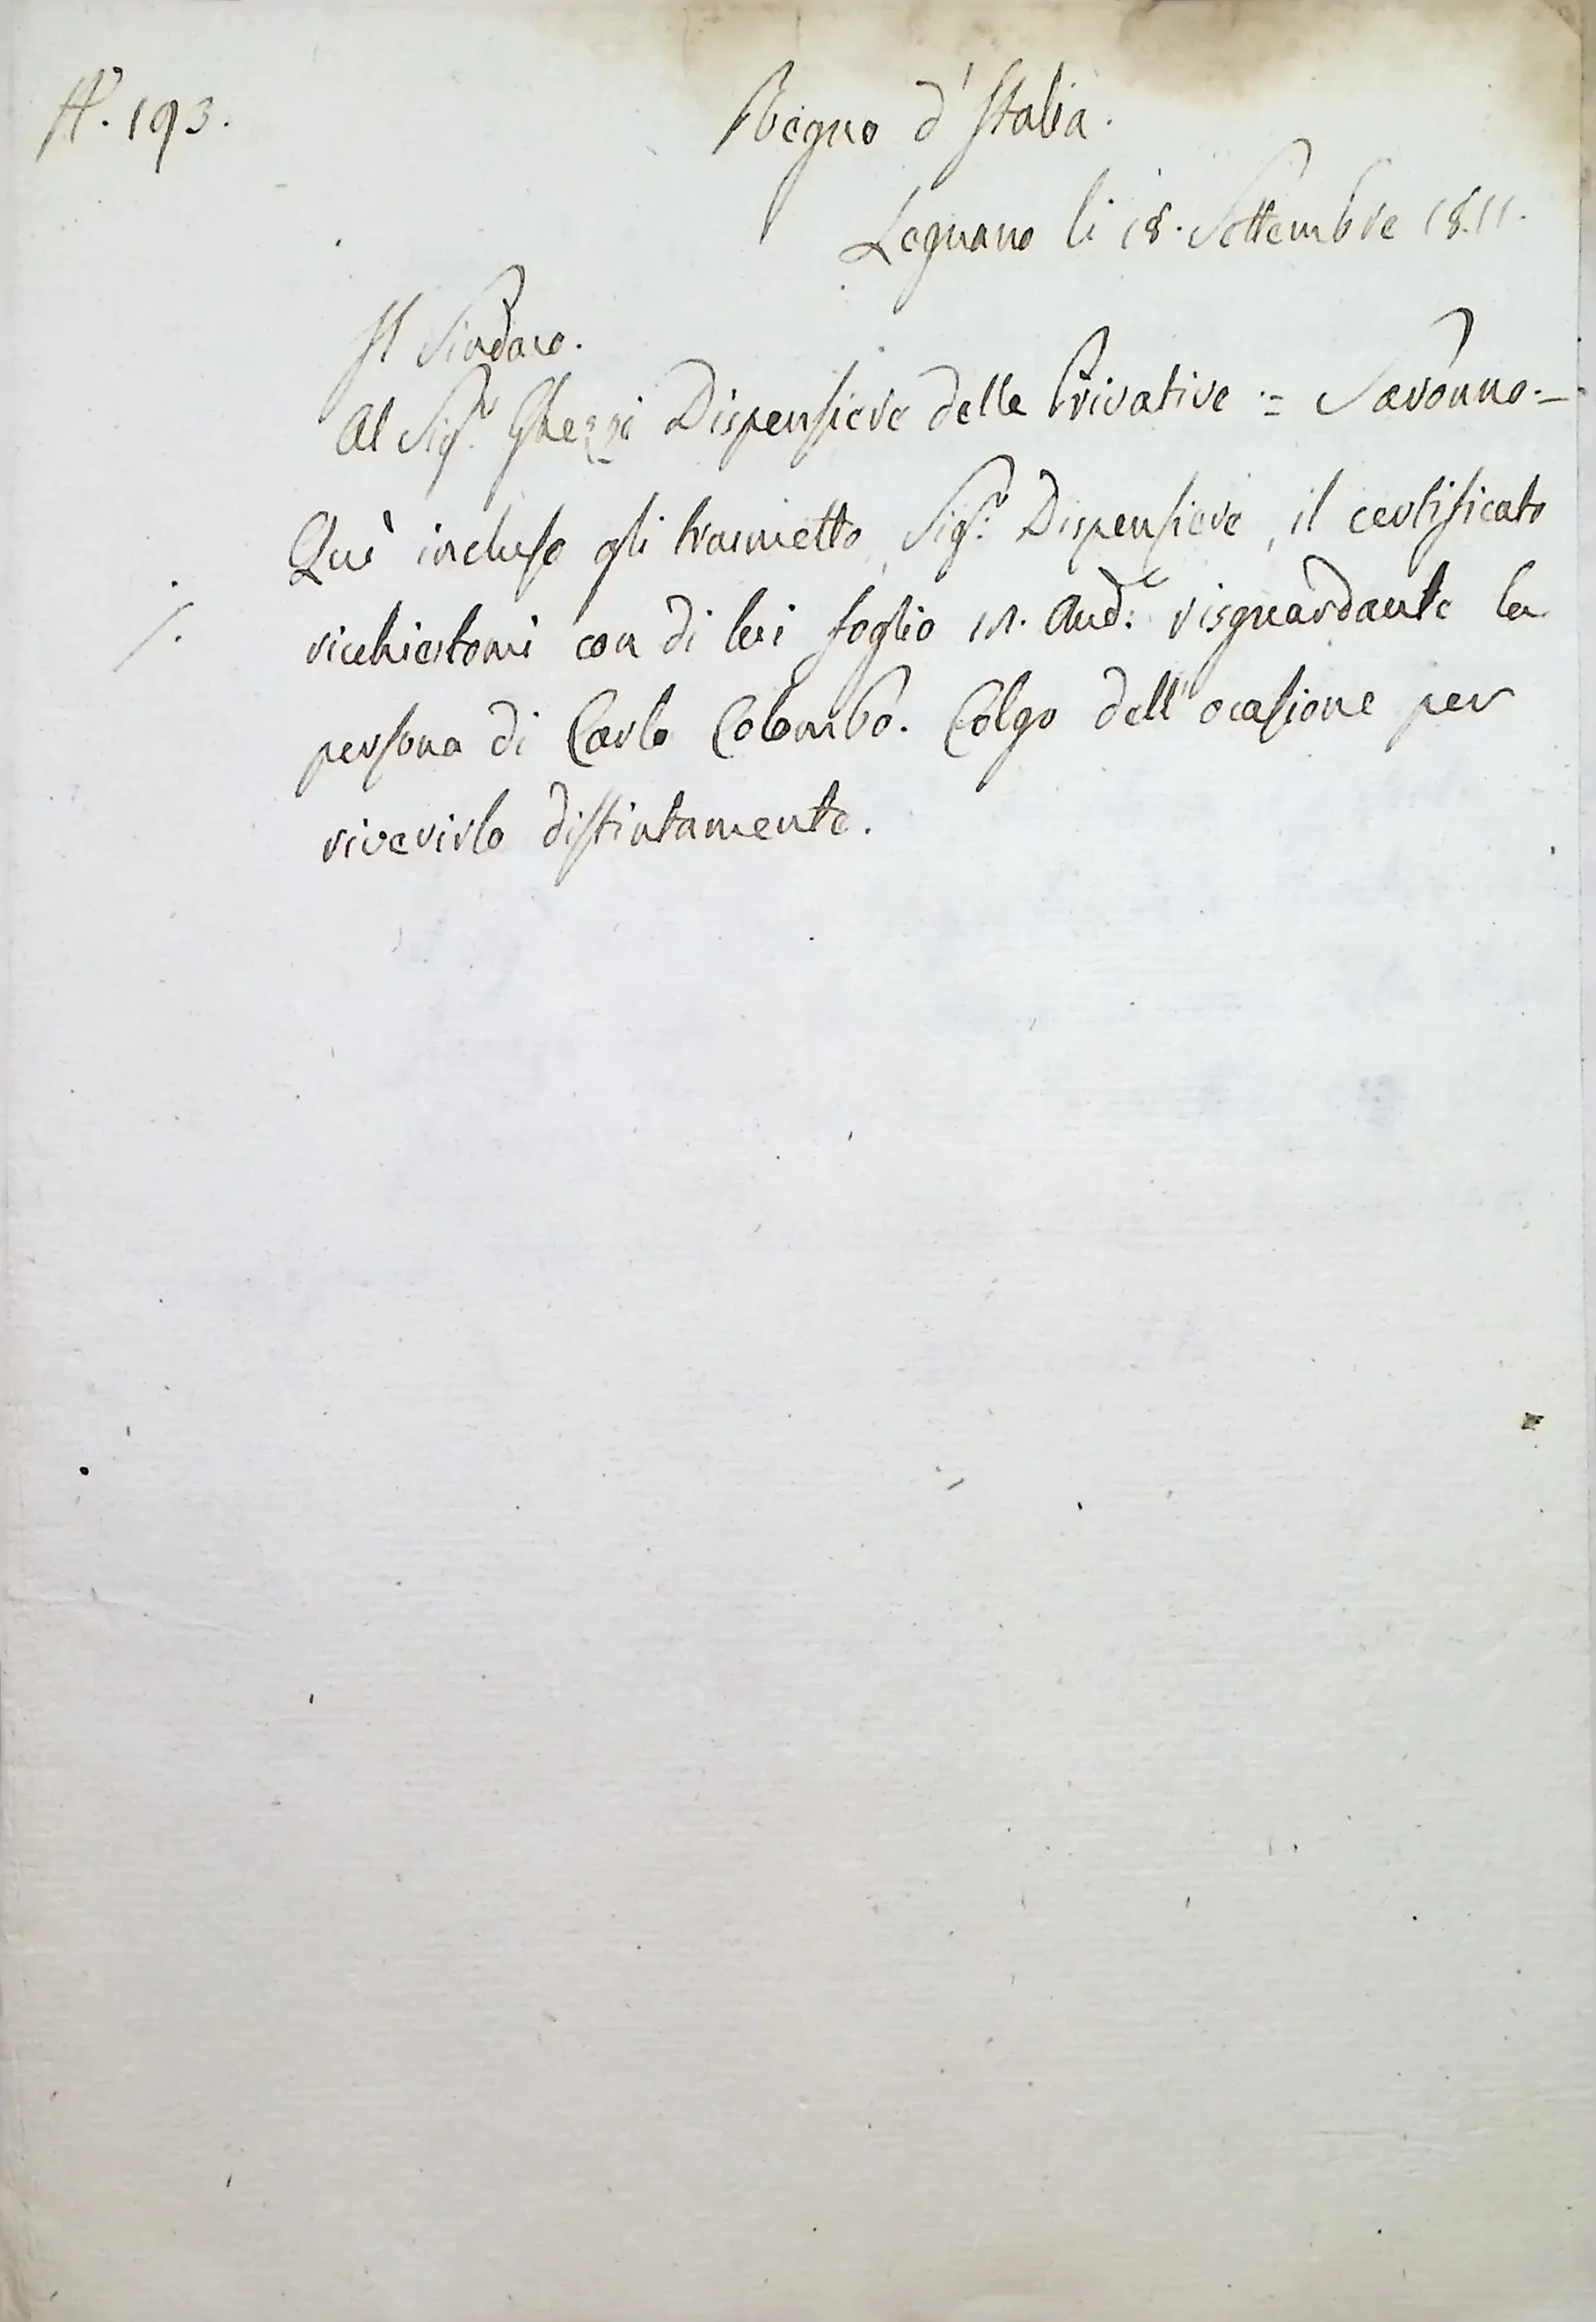 N.° 193.
Regno d'Italia.
Legnano li 18. Settembre 1811.
Il Sindaco.
Al Sig.r Ghezzi Dispensiere delle Privative = Saronno.=
Quì incluso gli trasmetto, Sig.r Dispensiere, il certificato
./. richiestomi con di lei foglio And.e risguardante la
persona di Carlo Colombo. Colgo dell'ocasione per
riverirlo distintamente.